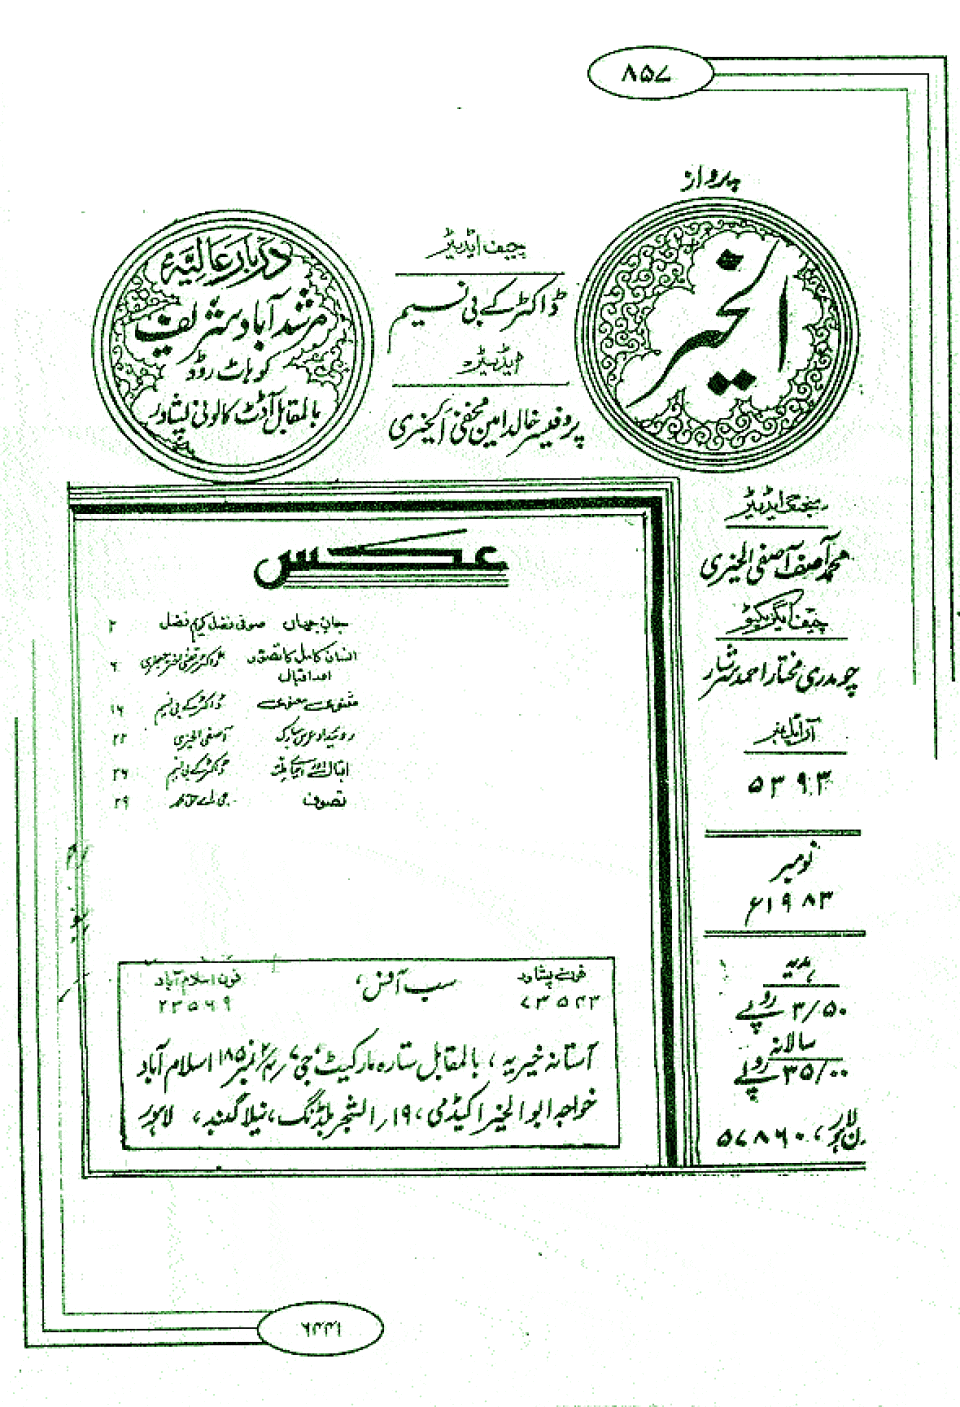 ۸۵۷
پرواز
الخیر
چیف ایڈیٹر
ڈاکٹر کے بی نسیم
ایڈیٹر
پروفیسر خالد امین مخفی الخیری
دربار عالیہ
مرشد آباد شریف
کوہاٹ روڈ
بالمقابل آڈٹ کالونی پشاور
مینجنگ ایڈیٹر
محمد آصف آصفی الخیری
چیف ایگزیکٹو
چوہدری مختار احمد سرشار
آر ایل نمبر
۵۳۹۳
نومبر
۱۹۸۳ء
ہدیہ
۳/۵۰ روپے
سالانہ
۳۵/۰۰ روپے
لاہور، ۵۷۸۶۰
عکس
جانِ جہاں صوفی فضل کریم فضل ۲
انسان کامل کا تصور ڈاکٹر مرتضیٰ اختر جعفری ۶
اور اقبال
مثنوی معنوی ڈاکٹر کے بی نسیم ۱۶
روئیداد عرس مبارک آصفی الخیری ۲۲
اقبال اور ڈاکٹر کے بی نسیم ۲۶
تصوف ۲۹
فون پشاور سب آفس، فون اسلام آباد
۷۳۵۴۳ ۲۳۵۶۹
آستانہ خیریہ، بالمقابل ستارہ مارکیٹ، جی ۷/۲ نمبر ۱۸۵ اسلام آباد
خواجہ ابوالخیر اکیڈمی، ۱۹، الشجر بلڈنگ، نیلا گنبد، لاہور
۶۴۴۱